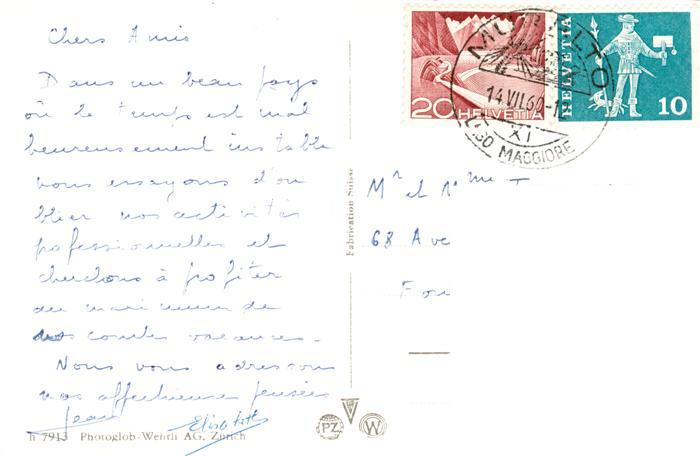 Chers Amis
Dans un beau pays
où le temps est mal
heureusement instable
nous essayons d'ou
blier nos activités
professionnelles et
cherchons à profiter
du maximum de
nos courtes vacances.
Nous vous adressons
nos affectueuses pensées
Jean Elisabeth
h 7913 Photoglob-Wehrli AG, Zürich
Fabrication Suisse
PZ W
20 HELVETIA
HELVETIA 10
MURALTO
14.VII.60-1
XI
LAGO MAGGIORE
Mr et Mme T
68 Ave
Fon